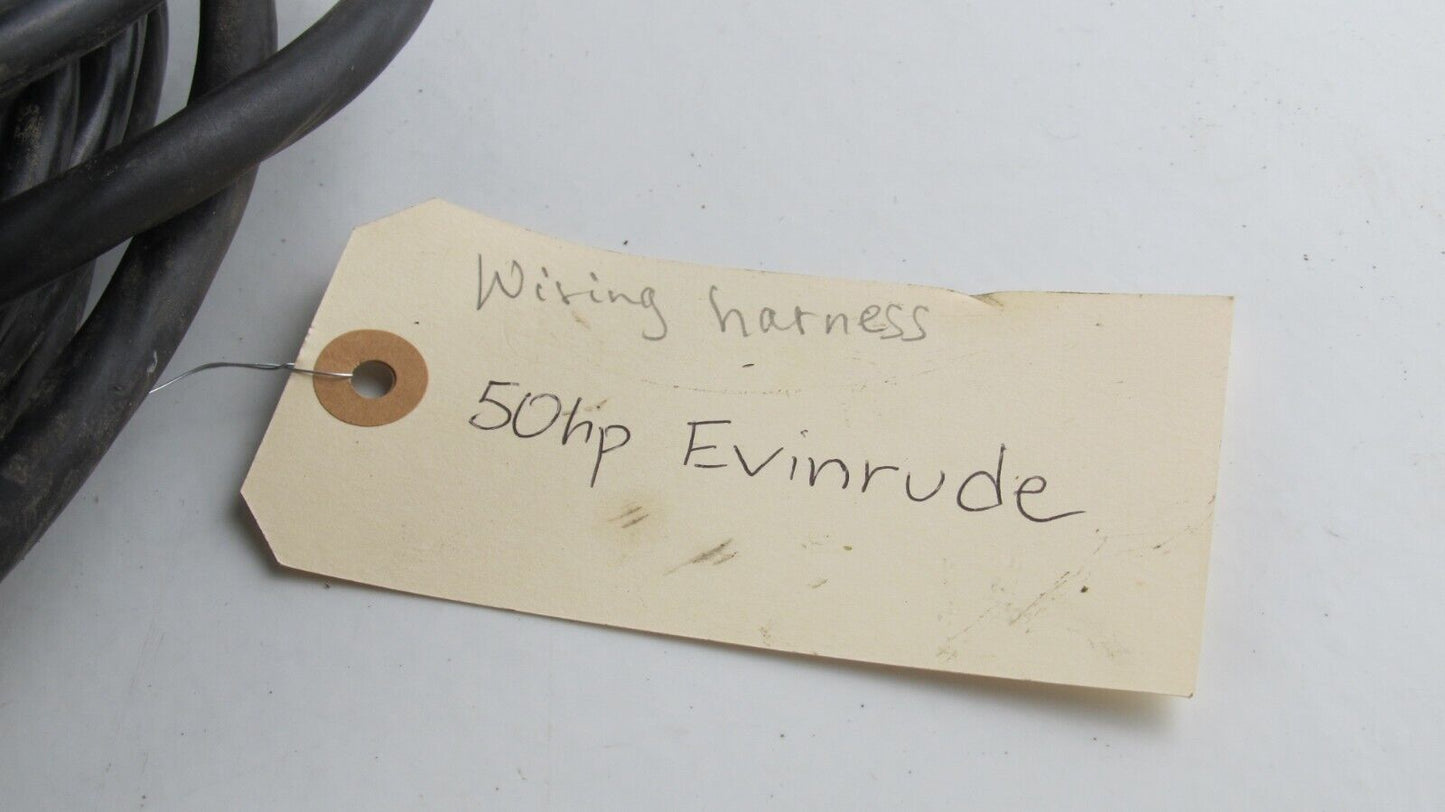 Wiring harness
50hp Evinrude